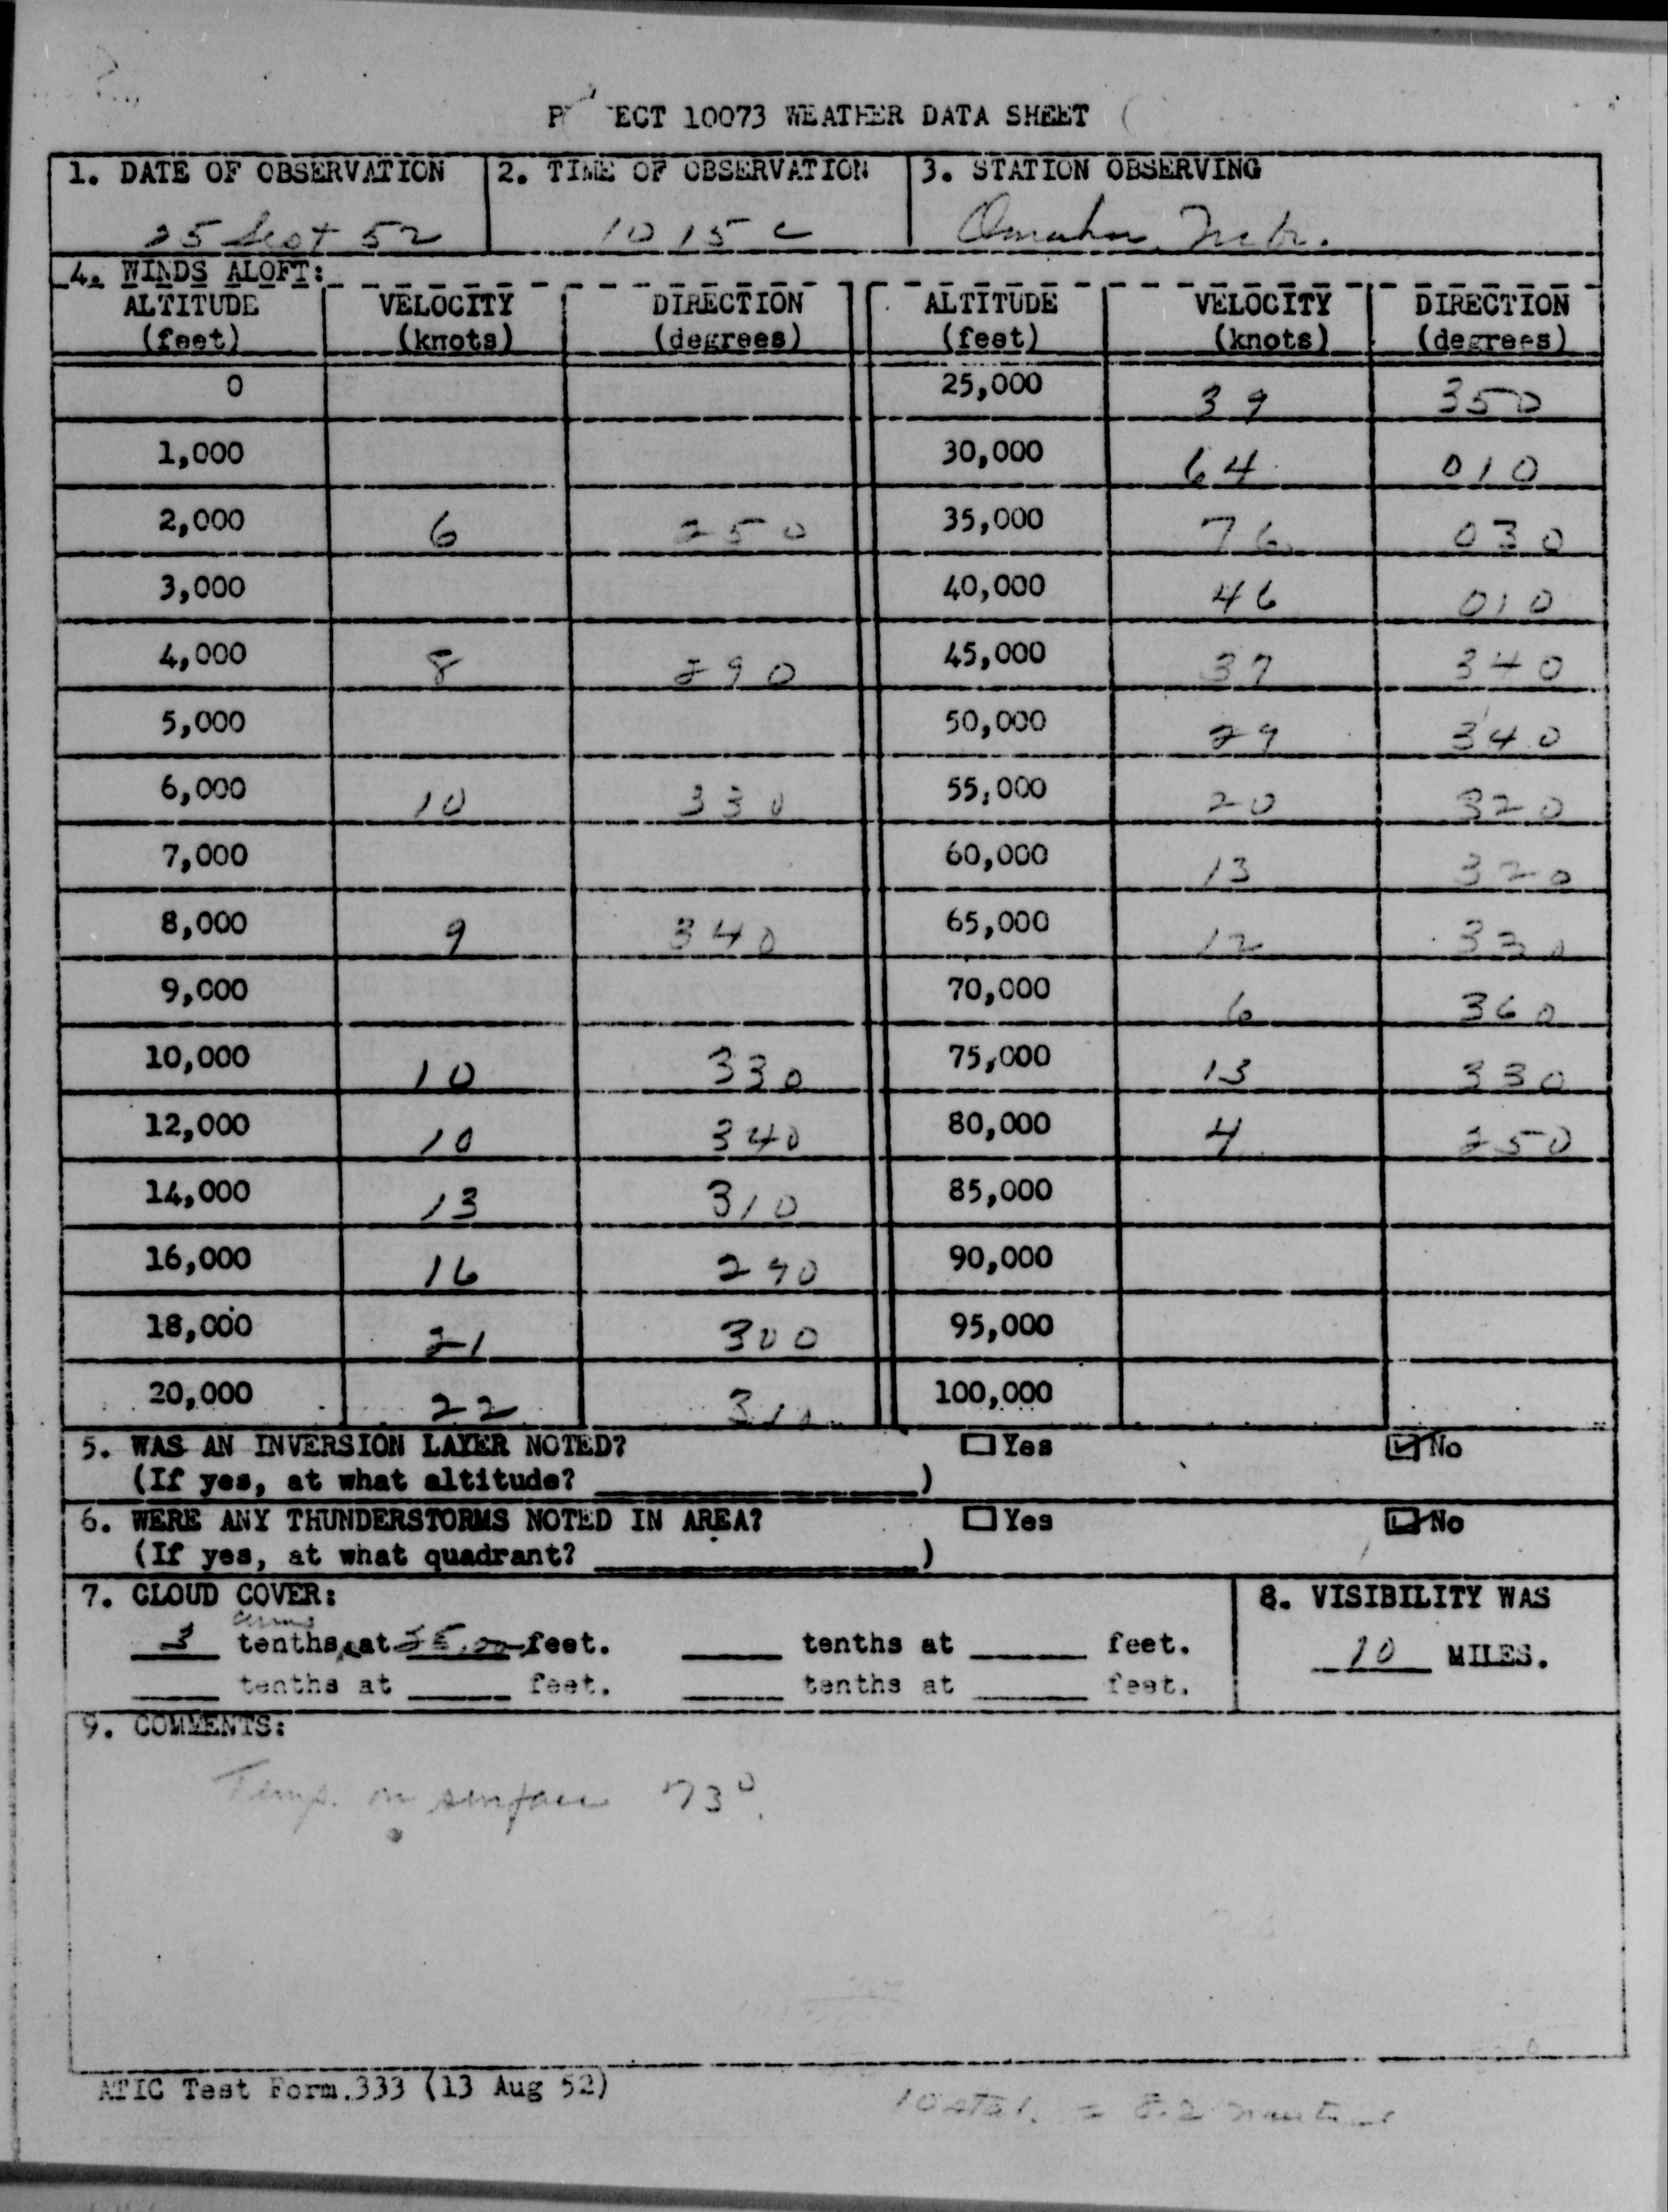 ECT 10073 WEATHER DATA SHEET
1. DATE OF OBSERVATION 2. TIME OF OBSERVATION 3. STATION OBSERVING
25 Sept 52 1015 C Omaha, Nebr.
4. WINDS ALOFT:
ALTITUDE VELOCITY DIRECTION ALTITUDE VELOCITY DIRECTION
(feet) (knots) (degrees) (feet) (knots) (degrees)
0 25,000 39 350
1,000 30,000 64 010
2,000 6 250 35,000 76 030
3,000 40,000 46 010
4,000 8 290 45,000 37 340
5,000 50,000 29 340
6,000 10 330 55,000 20 320
7,000 60,000 13 320
8,000 9 340 65,000 12 330
9,000 70,000 6 360
10,000 10 330 75,000 13 330
12,000 10 340 80,000 4 250
14,000 13 310 85,000
16,000 16 290 90,000
18,000 21 300 95,000
20,000 22 310 100,000
5. WAS AN INVERSION LAYER NOTED? Yes No
(If yes, at what altitude? )
6. WERE ANY THUNDERSTORMS NOTED IN AREA? Yes No
(If yes, at what quadrant? )
7. CLOUD COVER: 8. VISIBILITY WAS
3 tenths at feet. tenths at feet. 10 MILES.
tenths at feet. tenths at feet.
9. COMMENTS:
Temp. on surface 73°.
ATIC Test Form 333 (13 Aug 52)
= 8.2